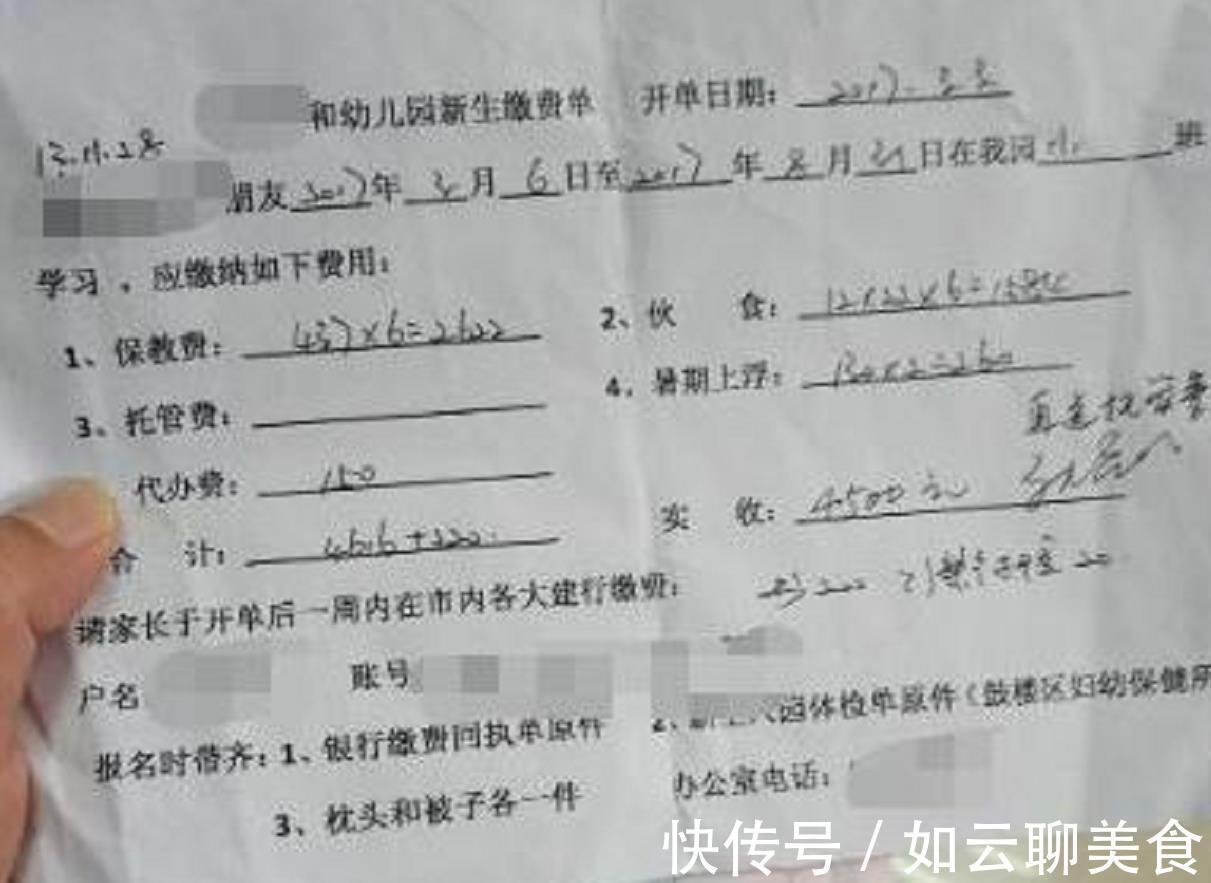 和幼儿园新生缴费单 开单日期: 2017.
13.11.28
朋友2017年3月6日至2017年8月31日在我园小班
学习，应缴纳如下费用:
1、保教费: 437×6=2622
2、伙 食: 12×22×6=1584
3、托管费:
4、暑期上浮: 130×2=260
代办费: 150
合 计: 4616+
实 收: 4500元
请家长于开单后一周内在市内各大建行缴费:
户名 账号
报名时带齐: 1、银行缴费回执单原件 2、新生入园体检单原件(鼓楼区妇幼保健所
3、枕头和被子各一件 办公室电话:
快传号 / 如云聊美食